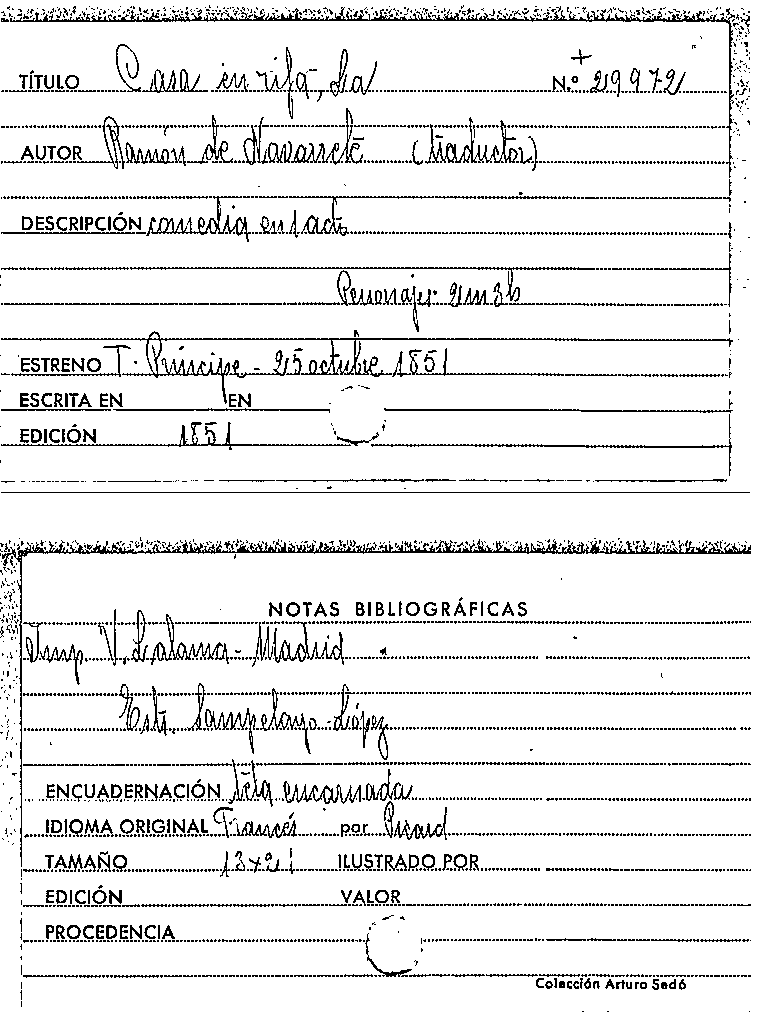 TÍTULO Casa en rifa, La N.º + 29972
AUTOR Ramón de Navarrete (traductor)
DESCRIPCIÓN comedia en 1 acto
Personajes 2m 3h
ESTRENO T. Príncipe - 25 octubre 1851
ESCRITA EN EN
EDICIÓN 1851
NOTAS BIBLIOGRÁFICAS
Imp. V. Lalama - Madrid
Estr. Sampelayo - López
ENCUADERNACIÓN tela encarnada
IDIOMA ORIGINAL Francés por Picard
TAMAÑO 13x21 ILUSTRADO POR
EDICIÓN VALOR
PROCEDENCIA
Colección Arturo Sedó